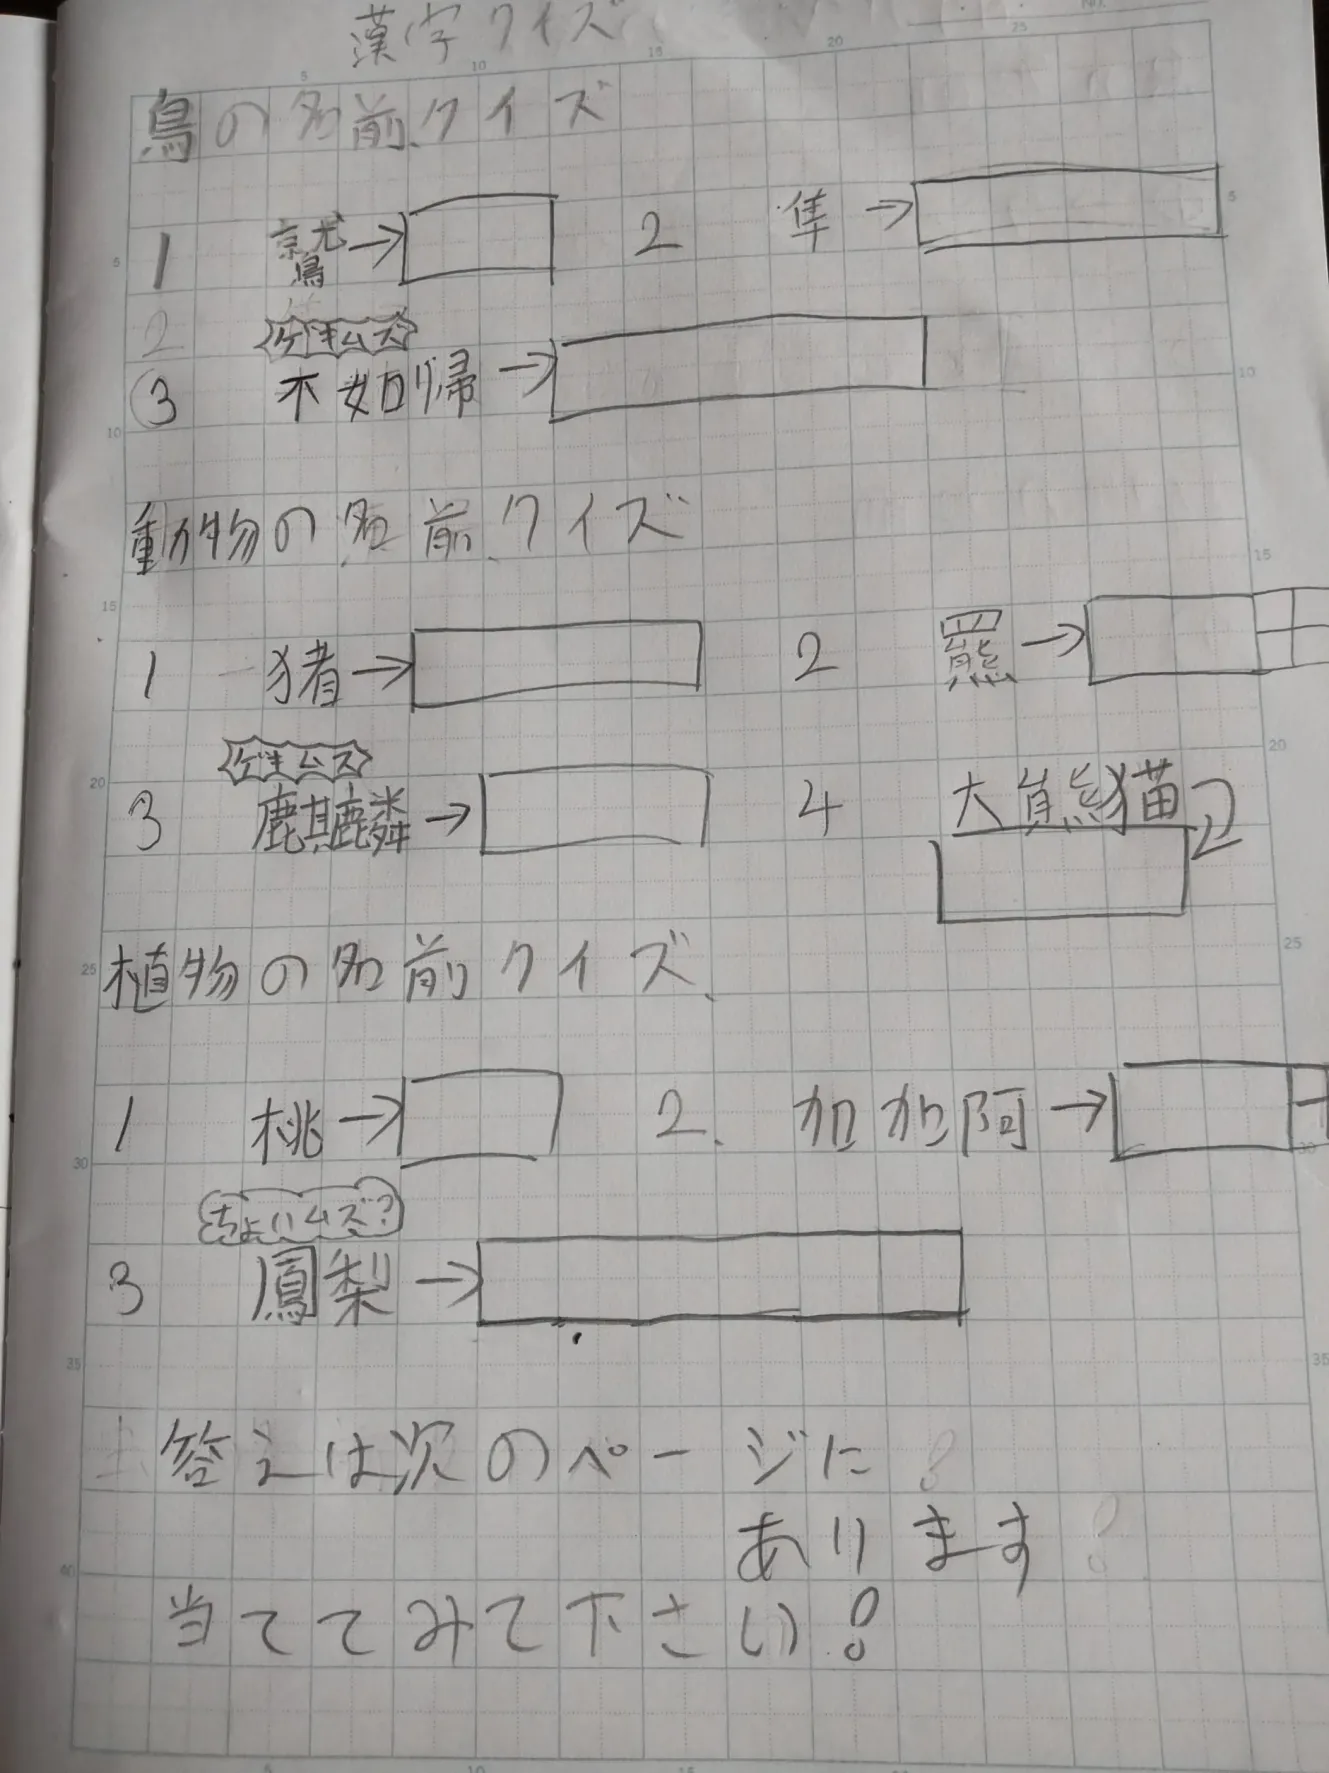 漢字クイズ
鳥の名前クイズ
1 鷲→ 2 隼→
2 ゲキムズ
③ 不如帰→
動物の名前クイズ
1 猪→ 2 羆→
ゲキムズ
3 麒麟→ 4 大熊猫
植物の名前クイズ
1 桃→ 2. 加加阿→
ちょいムズ?
3 鳳梨→
答えは次のページに
あります
当ててみて下さい!